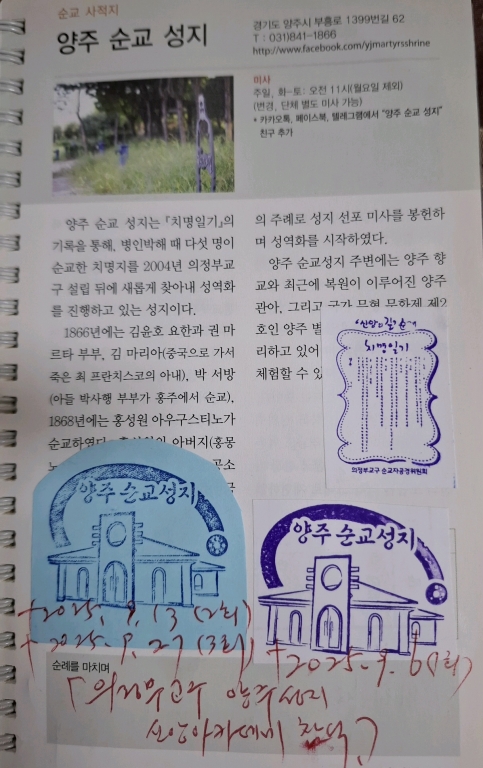 순교 사적지
양주 순교 성지
경기도 양주시 부흥로 1399번길 62
T : 031)841-1866
http://www.facebook.com/yjmartyrsshrine
미사
주일, 화-토: 오전 11시(월요일 제외)
(변경, 단체 별도 미사 가능)
* 카카오톡, 페이스북, 텔레그램에서 "양주 순교 성지"
친구 추가
양주 순교 성지는 『치명일기』의
기록을 통해, 병인박해 때 다섯 명이
순교한 치명지를 2004년 의정부교
구 설립 뒤에 새롭게 찾아내 성역화
를 진행하고 있는 성지이다.
1866년에는 김윤호 요한과 권 마
르타 부부, 김 마리아(중국으로 가서
죽은 최 프란치스코의 아내), 박 서방
(아들 박사행 부부가 홍주에서 순교),
1868년에는 홍성원 아우구스티노가
순교하였다. 홍성원의 아버지(홍몽
의 주례로 성지 선포 미사를 봉헌하
며 성역화를 시작하였다.
양주 순교성지 주변에는 양주 향
교와 최근에 복원이 이루어진 양주
관아, 그리고 국가 무형 문화제 제2
호인 양주 별
리하고 있어
체험할 수 있
신앙의 길 순례
치명일기
의정부교구 순교자공경위원회
양주 순교성지
양주 순교성지
+2025. 9. 13 (2회)
+2025. 9. 27 (3회)
+2025. 9. 6 (1회)
순례를 마치며
「의정부교구 양주성지
신앙아카데미 참석」